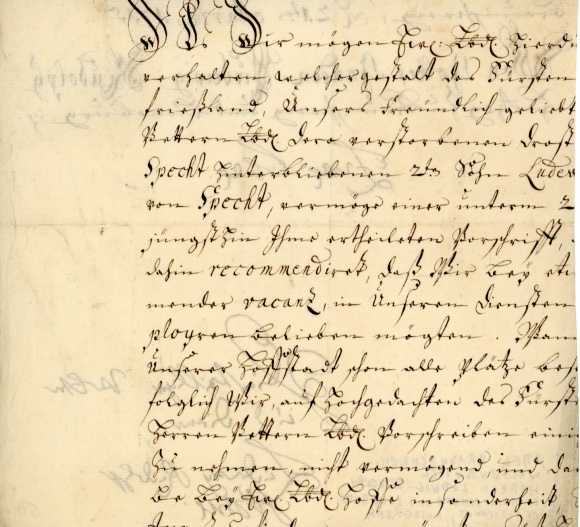 P P Wir mögen Ewr. Lbd. hierdu
verhalten, welchergestalt des Fürsten
frießland Unsers Freundlich geliebt
Vettern Lbd. dero verstorbenen Drost
Specht hinterbliebenen 2ts Sohn Ludew
von Specht, vermöge einer unterm 2
jüngsthin Ihme ertheileten Vorschrifft,
dahin recommendiret, daß Wir bey etw
mender vacantz, in Unseren diensten
ployren belieben mögten. Wann
Unserer Hoffstadt schon alle Plätze bese
folglich Wir, auf Hochgedachten des Fürste
Herren Vettern Lbd. Vorschreiben einig
zu nehmen, nicht vermögend, und da
be bey Ewr. Lbd. Hoffe insonderheit